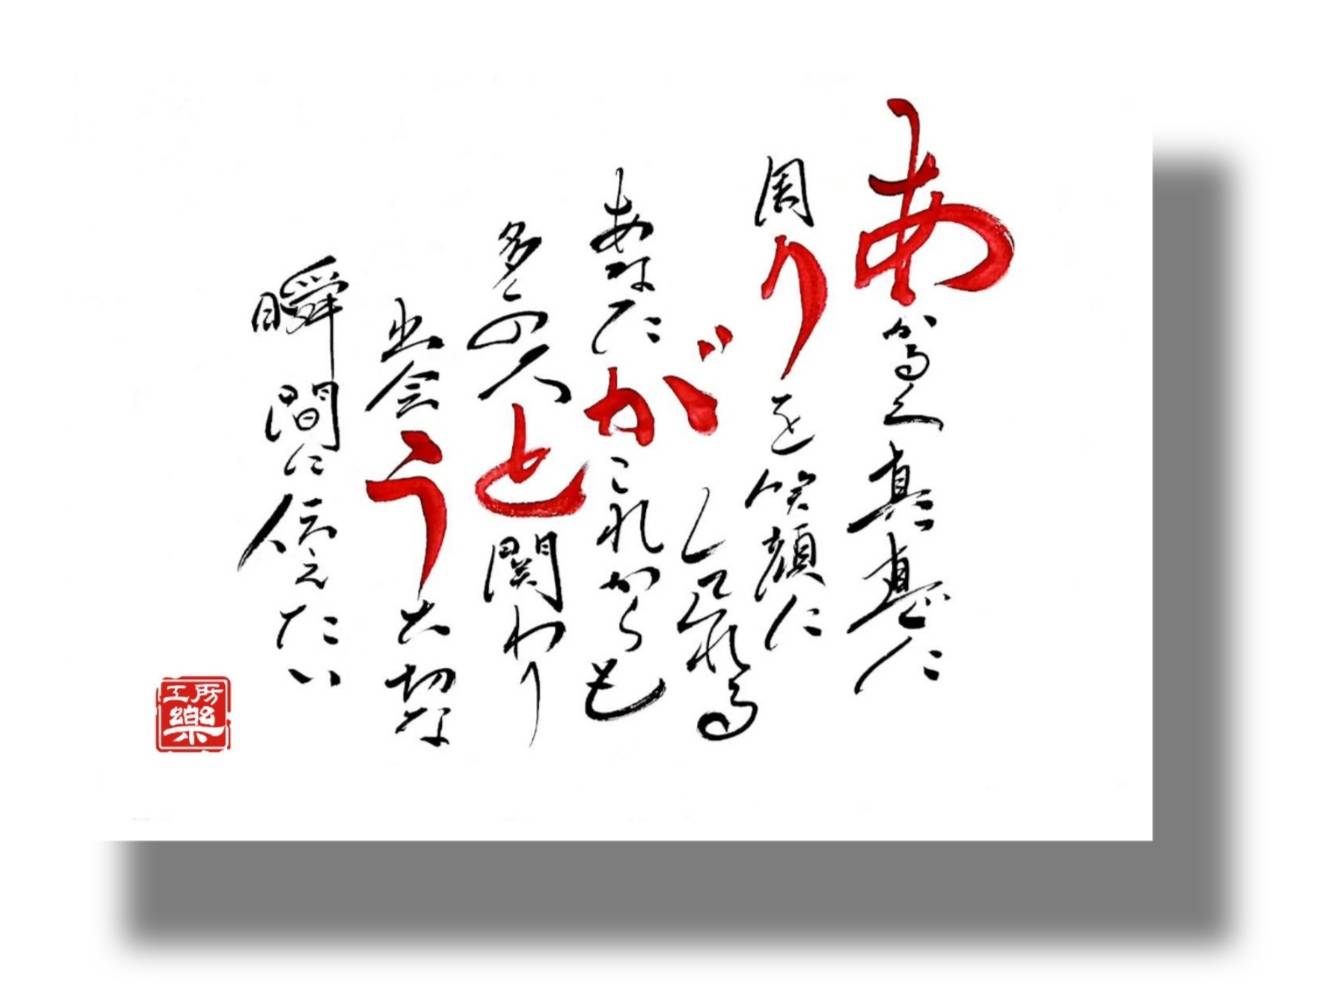 あかるく真直に
周りを笑顔に
してくれる
あなたがこれからも
多くの人と関わり
出会う大切な
瞬間に伝えたい
工房
樂